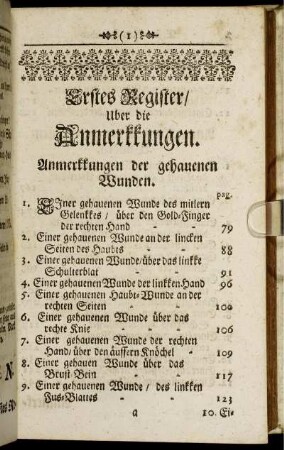 (1)
Erstes Register/
Uber die
Anmerkkungen.
Anmerkkungen der gehauenen
Wunden.
pag.
1. EIner gehauenen Wunde des mitlern
Gelenkkes / über den Gold-Finger
der rechten Hand - - 79
2. Einer gehauenen Wunde an der lincken
Seiten des Haubts - - 88
3. Einer gehauenen Wunde/über das linkke
Schulterblat - - 91
4. Einer gehauenen Wunde der linkken Hand 96
5. Einer gehauenen Haubt-Wunde an der
rechten Seiten - - 100
6. Einer gehauenen Wunde über das
rechte Knie - - 106
7. Einer gehauenen Wunde der rechten
Hand/ über den äussern Knöchel - 109
8. Einer gehauen Wunde über das
Brust-Bein - - 117
9. Einer gehauenen Wunde / des linkken
Fus-Blattes - - 123
a 10. Ei-